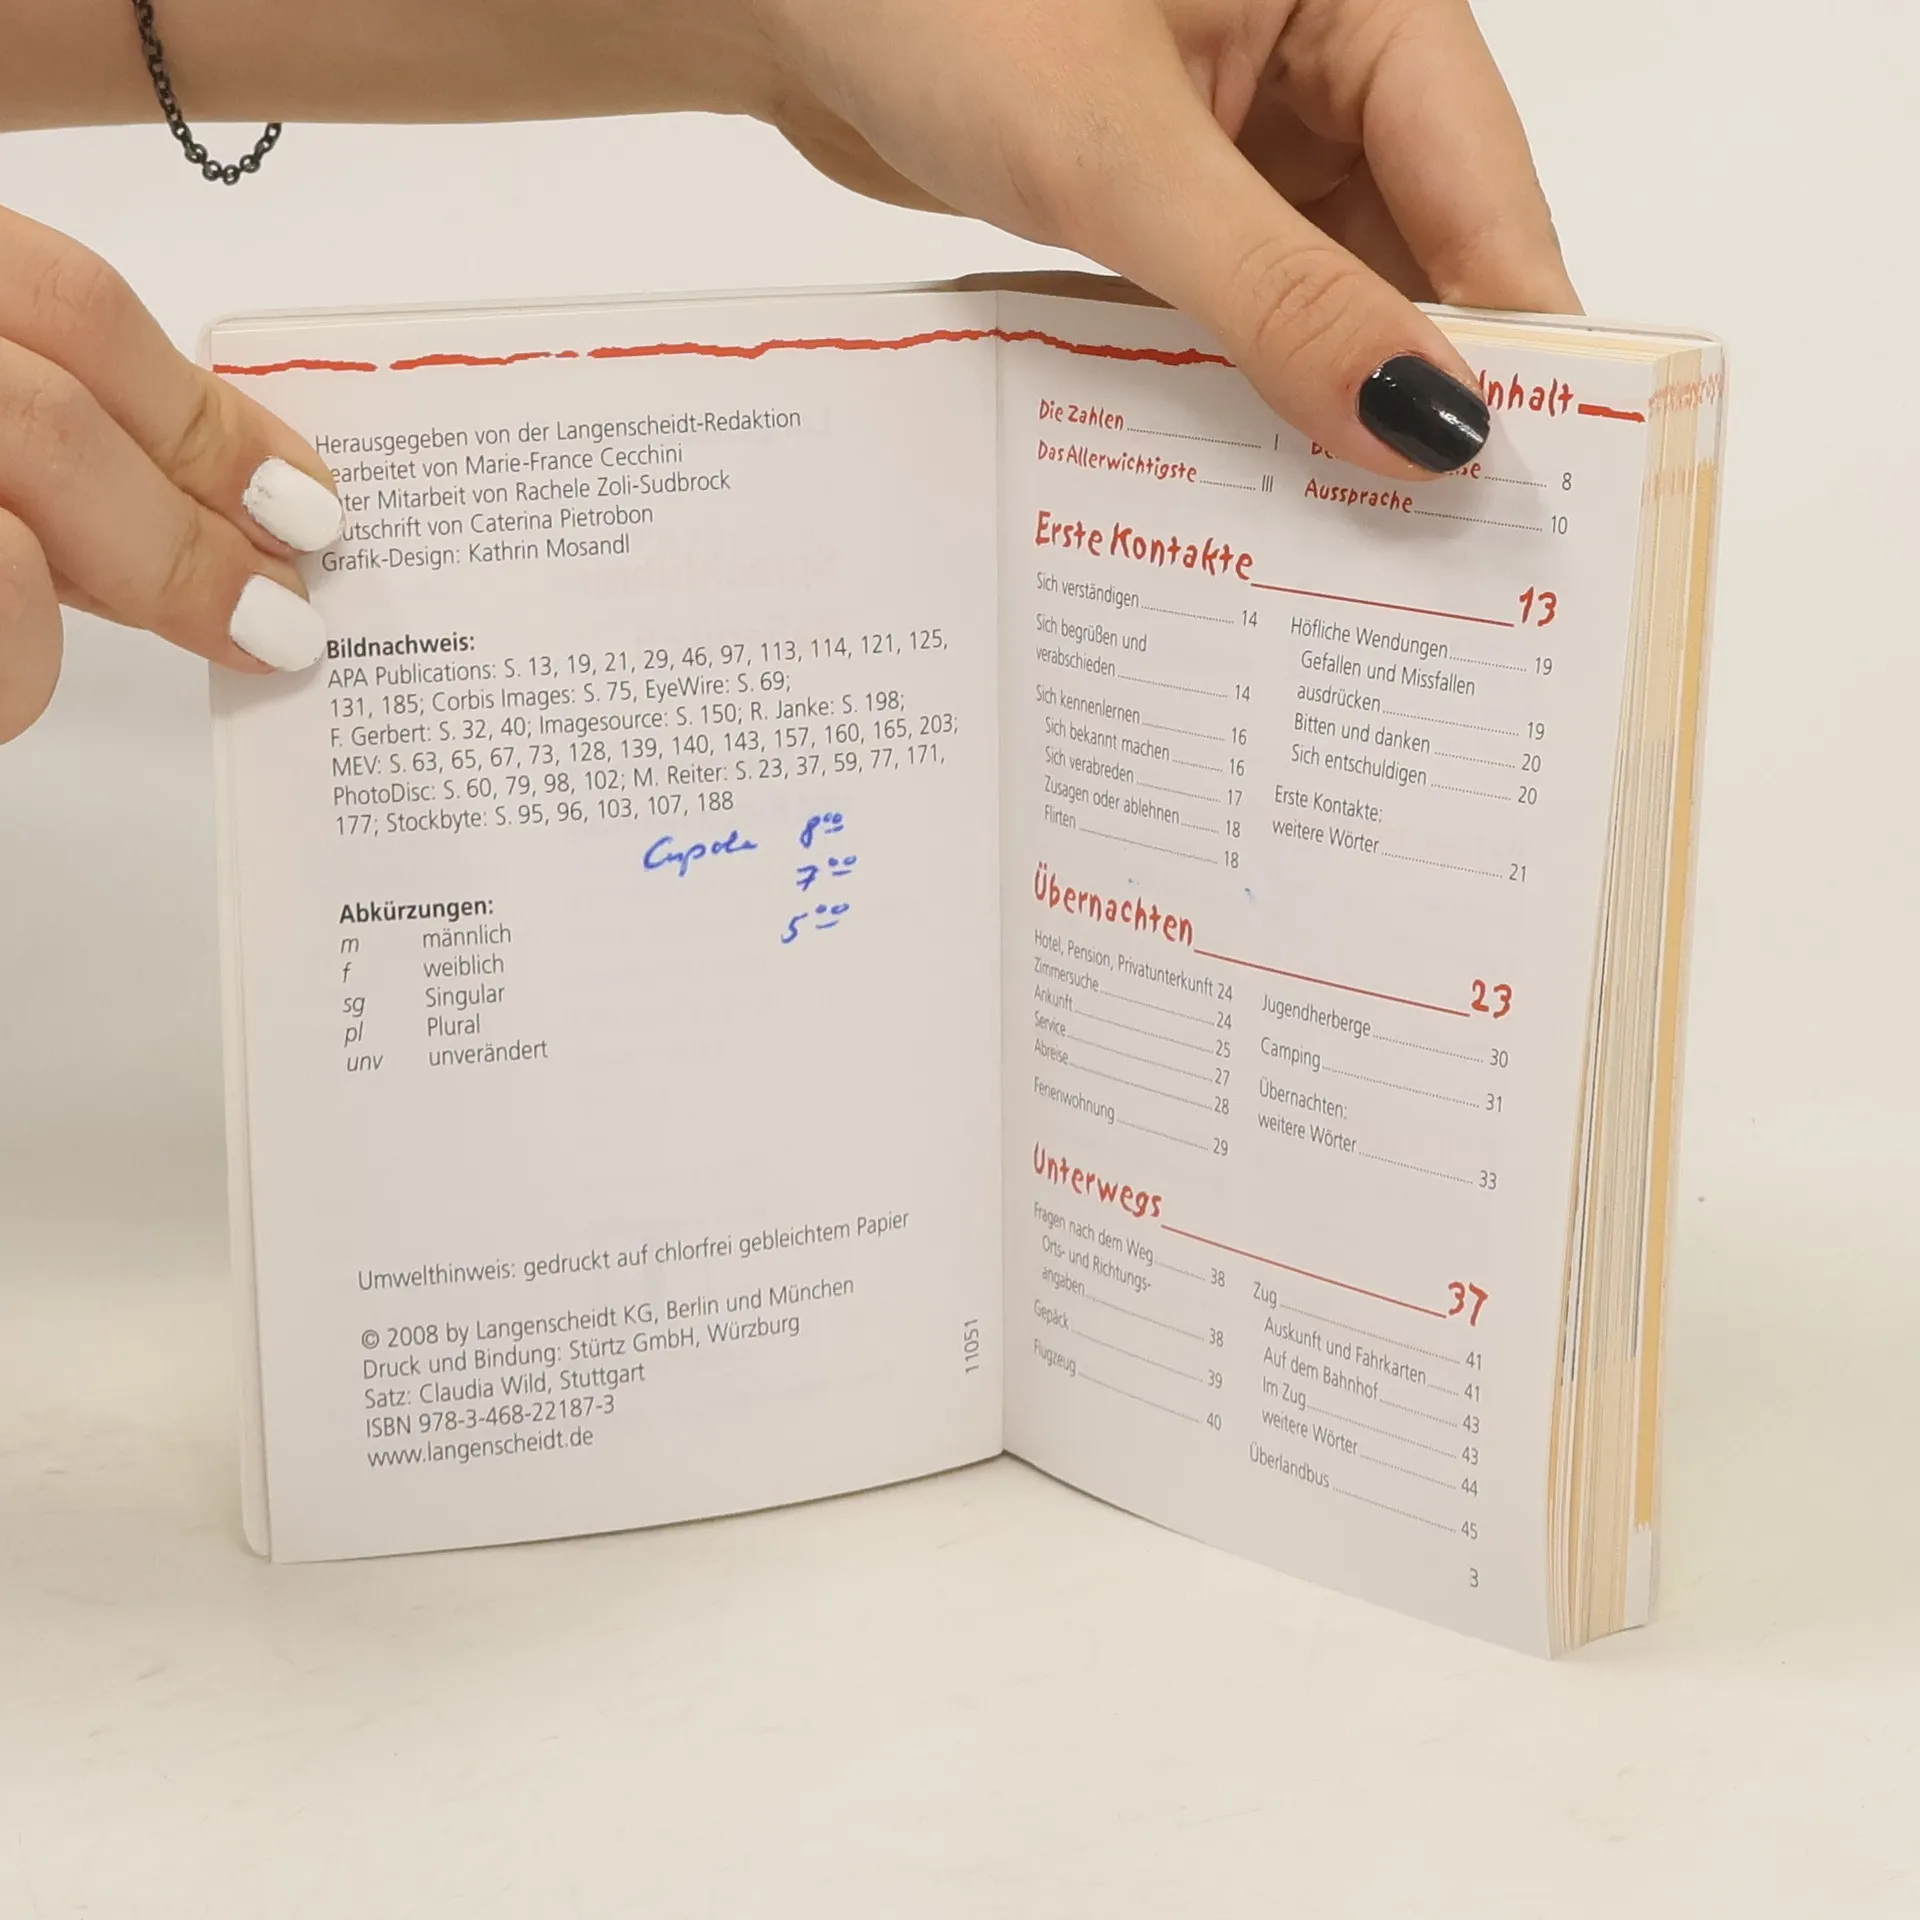 Herausgegeben von der Langenscheidt-Redaktion
von Marie-France Cecchini
Mitarbeit von Rachele Zoli-Sudbrock
von Caterina Pietrobon
Grafik-Design: Kathrin Mosandl
Bildnachweis:
APA Publications: S. 13, 19, 21, 29, 46, 97, 113, 114, 121, 125,
131, 185; Corbis Images: S. 75, EyeWire: S. 69;
F. Gerbert: S. 32, 40; Imagesource: S. 150; R. Janke: S. 198;
MEV: S. 63, 65, 67, 73, 128, 139, 140, 143, 157, 160, 165, 203;
PhotoDisc: S. 60, 79, 98, 102; M. Reiter: S. 23, 37, 59, 77, 171,
177; Stockbyte: S. 95, 96, 103, 107, 188
Cupola 8⁰⁰
7⁰⁰
5⁰⁰
Abkürzungen:
m männlich
f weiblich
sg Singular
pl Plural
unv unverändert
Umwelthinweis: gedruckt auf chlorfrei gebleichtem Papier
© 2008 by Langenscheidt KG, Berlin und München
Druck und Bindung: Stürtz GmbH, Würzburg
Satz: Claudia Wild, Stuttgart
ISBN 978-3-468-22187-3
www.langenscheidt.de
11051
Inhalt
Die Zahlen I
Das Allerwichtigste III
8
Aussprache 10
Erste Kontakte 13
Sich verständigen 14
Sich begrüßen und
verabschieden 14
Sich kennenlernen 16
Sich bekannt machen 16
Sich verabreden 17
Zusagen oder ablehnen 18
Flirten 18
Höfliche Wendungen 19
Gefallen und Missfallen
ausdrücken 19
Bitten und danken 20
Sich entschuldigen 20
Erste Kontakte:
weitere Wörter 21
Übernachten 23
Hotel, Pension, Privatunterkunft 24
Zimmersuche 24
Ankunft 25
Service 27
Abreise 28
Ferienwohnung 29
Jugendherberge 30
Camping 31
Übernachten:
weitere Wörter 33
Unterwegs 37
Fragen nach dem Weg 38
Orts- und Richtungs-
angaben 38
Gepäck 39
Flugzeug 40
Zug 41
Auskunft und Fahrkarten 41
Auf dem Bahnhof 43
Im Zug 43
weitere Wörter 44
Überlandbus 45
3